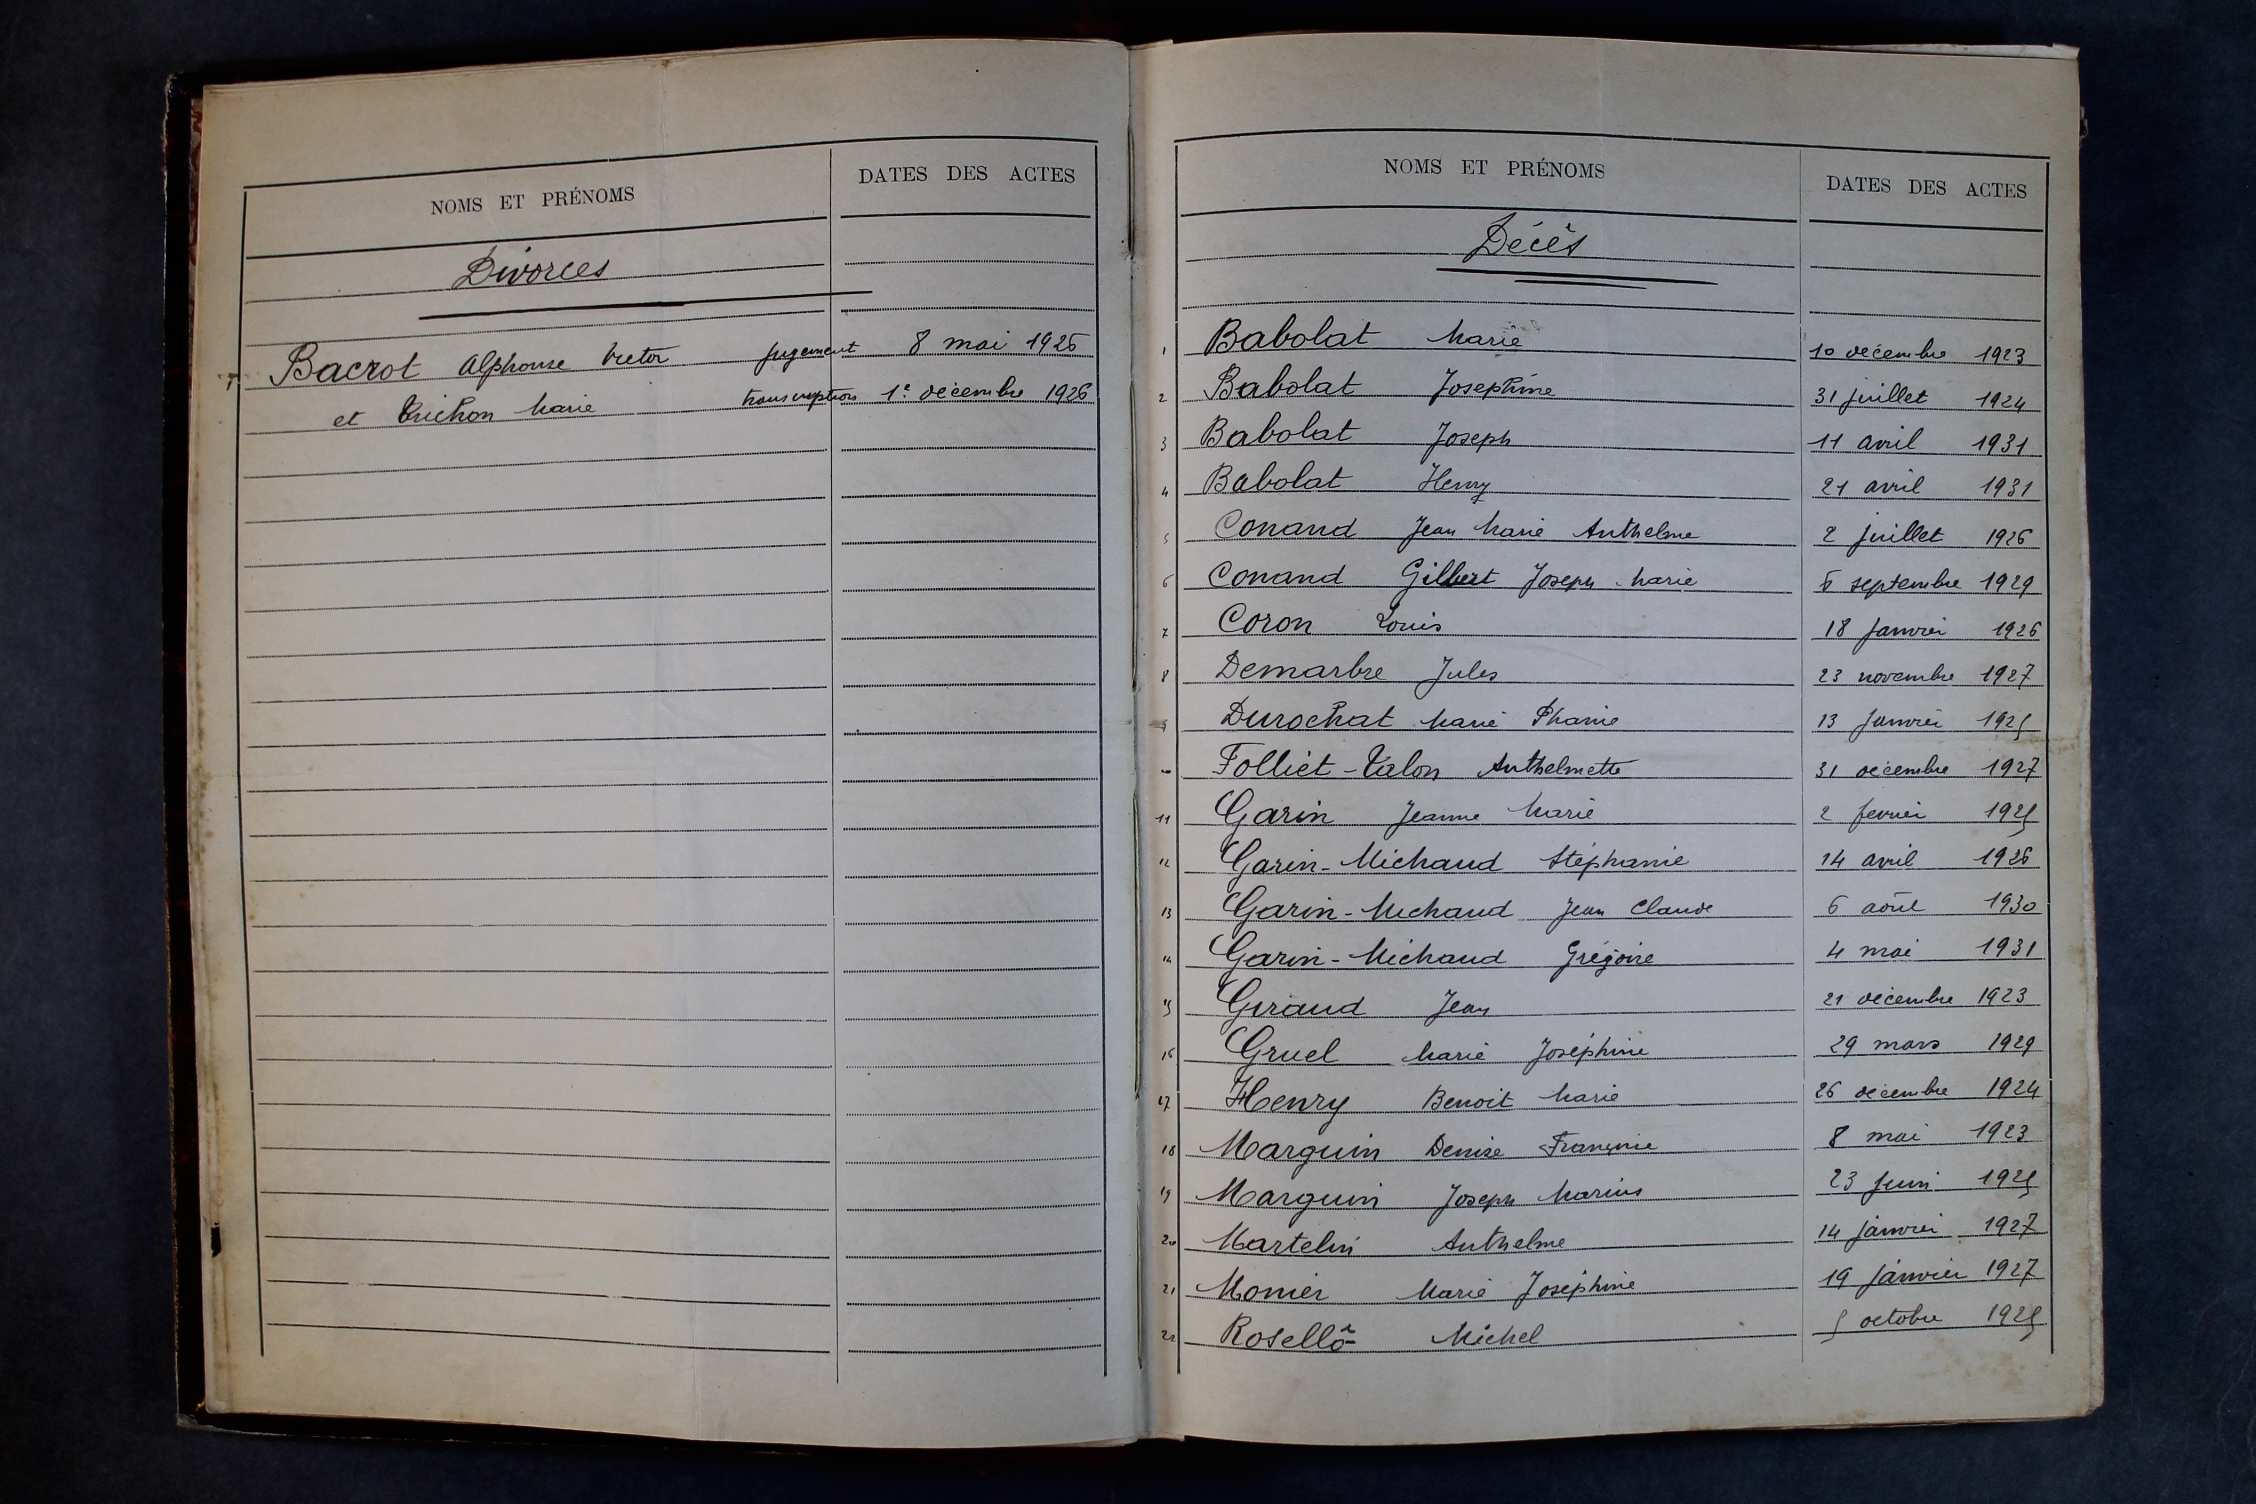 NOMS ET PRÉNOMS DATES DES ACTES
Divorces
1 Bacrot Alphonse Victor jugement 8 mai 1926
et Trichon Marie transcription 1er décembre 1926
NOMS ET PRÉNOMS DATES DES ACTES
Décès
1 Babolat Marie 10 décembre 1923
2 Babolat Josephine 31 juillet 1924
3 Babolat Joseph 11 avril 1931
4 Babolat Henry 21 avril 1931
5 Conand Jean Marie Anthelme 2 juillet 1926
6 Conand Gilbert Joseph Marie septembre 1929
7 Coron Louis 18 janvier 1926
8 Demarbre Jules 23 novembre 1927
9 Durochat Marie Phanie 13 janvier 1925
10 Folliet-Talon Anthelmette 31 décembre 1927
11 Garin Jeanne Marie 2 fevrier 1925
12 Garin-Michaud Stéphanie 14 avril 1926
13 Garin-Michaud Jean Claude 6 août 1930
14 Garin-Michaud Grégoire 4 mai 1931
15 Giraud Jean 21 décembre 1923
16 Gruel Marie Joséphine 29 mars 1929
17 Henry Benoit Marie 26 décembre 1924
18 Marguin Denise Françine 8 mai 1923
19 Marguin Joseph Marius 23 juin 1925
20 Martelin Anthelme 14 janvier 1927
21 Monier Marie Joséphine 19 janvier 1927
22 Roselló Michel 5 octobre 1925